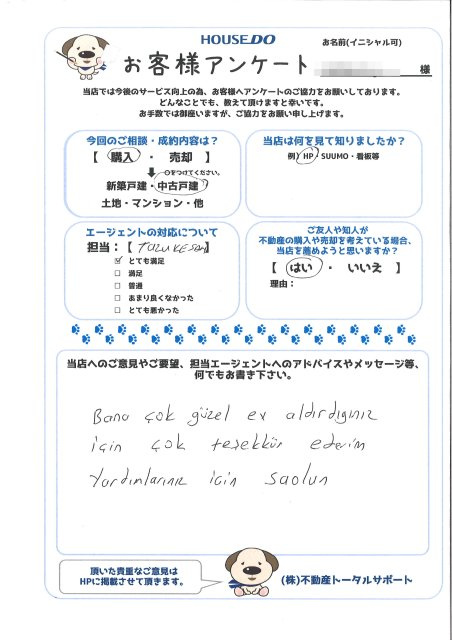 HOUSEDO
お名前(イニシャル可)
お客様アンケート
様
当店では今後のサービス向上の為、お客様へアンケートのご協力をお願いしております。
どんなことでも、教えて頂けますと幸いです。
お手数では御座いますが、ご協力をお願い申し上げます。
今回のご相談・成約内容は?
【 購入 ・ 売却 】
○をつけてください。
新築戸建・中古戸建
土地・マンション・他
当店は何を見て知りましたか?
例) HP・SUUMO・看板等
エージェントの対応について
担当:【 】
☑ とても満足
□ 満足
□ 普通
□ あまり良くなかった
□ とても悪かった
ご友人や知人が
不動産の購入や売却を考えている場合、
当店を薦めようと思いますか?
【 はい ・ いいえ 】
理由:
当店へのご意見やご要望、担当エージェントへのアドバイスやメッセージ等、
何でもお書き下さい。
Bana çok güzel ev aldırdığınız
için çok teşekkür ederim
Yardımlarınız için saolun
頂いた貴重なご意見は
HPに掲載させて頂きます。
(株)不動産トータルサポート